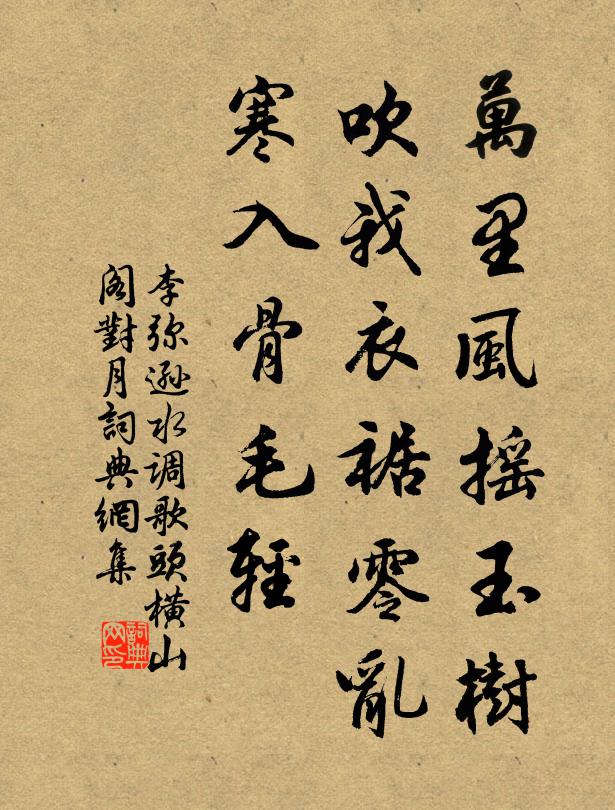 萬里風摇玉樹
吹我衣裾零亂
寒入骨毛輕
李弥遜水调歌頭橫山
閣對月詞典網集
詞典网印